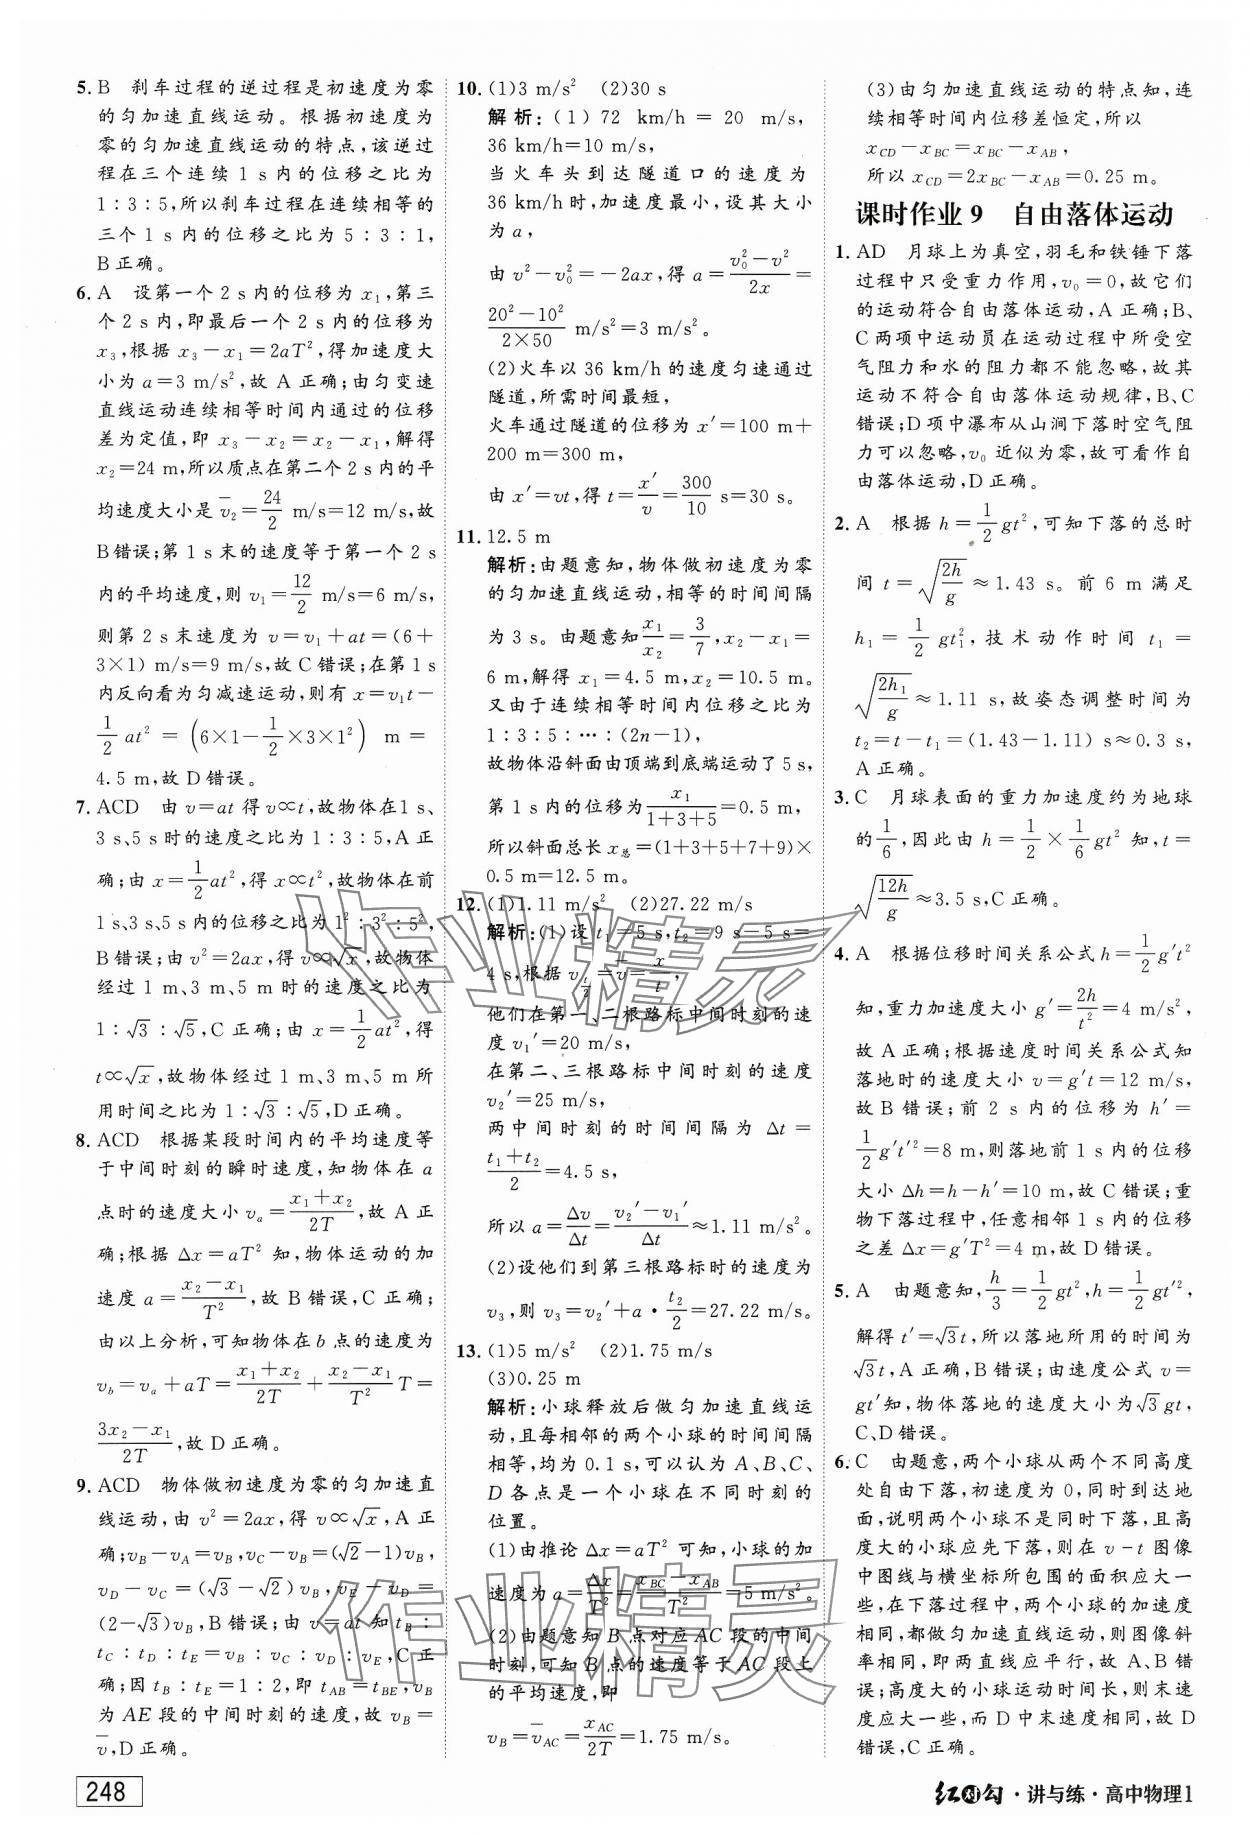 5. B 刹车过程的逆过程是初速度为零
的匀加速直线运动。根据初速度为
零的匀加速直线运动的特点,该逆过
程在三个连续 1 s 内的位移之比为
1∶3∶5,所以刹车过程在连续相等的
三个 1 s 内的位移之比为 5∶3∶1,
B 正确。
6. A 设第一个 2 s 内的位移为 x₁,第三
个 2 s 内,即最后一个 2 s 内的位移为
x₃,根据 x₃－x₁＝2aT²,得加速度大
小为 a＝3 m/s²,故 A 正确;由匀变速
直线运动连续相等时间内通过的位移
差为定值,即 x₃－x₂＝x₂－x₁,解得
x₂＝24 m,所以质点在第二个 2 s 内的平
均速度大小是 v̄₂＝24/2 m/s＝12 m/s,故
B 错误;第 1 s 末的速度等于第一个 2 s
内的平均速度,则 v₁＝12/2 m/s＝6 m/s,
则第 2 s 末速度为 v＝v₁＋at＝(6＋
3×1) m/s＝9 m/s,故 C 错误;在第 1 s
内反向看为匀减速运动,则有 x＝v₁t－
1/2 at²＝(6×1－1/2×3×1²) m＝
4.5 m,故 D 错误。
7. ACD 由 v＝at 得 v∝t,故物体在 1 s、
3 s、5 s 时的速度之比为 1∶3∶5,A 正
确;由 x＝1/2 at²,得 x∝t²,故物体在前
1 s、3 s、5 s 内的位移之比为 1²∶3²∶5²,
B 错误;由 v²＝2ax,得 v∝√x,故物体
经过 1 m、3 m、5 m 时的速度之比为
1∶√3∶√5,C 正确;由 x＝1/2 at²,得
t∝√x,故物体经过 1 m、3 m、5 m 所
用时间之比为 1∶√3∶√5,D 正确。
8. ACD 根据某段时间内的平均速度等
于中间时刻的瞬时速度,知物体在 a
点时的速度大小 vₐ＝(x₁＋x₂)/2T,故 A 正
确;根据 Δx＝aT² 知,物体运动的加
速度 a＝(x₂－x₁)/T²,故 B 错误,C 正确;
由以上分析,可知物体在 b 点的速度为
v_b＝vₐ＋aT＝(x₁＋x₂)/2T＋(x₂－x₁)/T² T＝
(3x₂－x₁)/2T,故 D 正确。
9. ACD 物体做初速度为零的匀加速直
线运动,由 v²＝2ax,得 v∝√x,A 正
确;v_B－v_A＝v_B,v_C－v_B＝(√2－1)v_B,
v_D－v_C＝(√3－√2)v_B,v_E－v_D＝
(2－√3)v_B,B 错误;由 v＝at 知 t_B∶
t_C∶t_D∶t_E＝v_B∶v_C∶v_D∶v_E,C 正
确;因 t_B∶t_E＝1∶2,即 t_AB＝t_BE,v_B
为 AE 段的中间时刻的速度,故 v_B＝
v̄,D 正确。
10. (1)3 m/s² (2)30 s
解析:(1)72 km/h＝20 m/s,
36 km/h＝10 m/s,
当火车头到达隧道口的速度为
36 km/h时,加速度最小,设其大小
为 a,
由 v²－v₀²＝－2ax,得 a＝(v₀²－v²)/2x＝
(20²－10²)/(2×50) m/s²＝3 m/s²。
(2)火车以 36 km/h 的速度匀速通过
隧道,所需时间最短,
火车通过隧道的位移为 x′＝100 m＋
200 m＝300 m,
由 x′＝vt,得 t＝x′/v＝300/10 s＝30 s。
11. 12.5 m
解析:由题意知,物体做初速度为零
的匀加速直线运动,相等的时间间隔
为 3 s。由题意知 x₁/x₂＝3/7,x₂－x₁＝
6 m,解得 x₁＝4.5 m,x₂＝10.5 m。
又由于连续相等时间内位移之比为
1∶3∶5∶…∶(2n－1),
故物体沿斜面由顶端到底端运动了 5 s,
第 1 s 内的位移为 x₁/(1＋3＋5)＝0.5 m,
所以斜面总长 x总＝(1＋3＋5＋7＋9)×
0.5 m＝12.5 m。
12. (1)1.11 m/s² (2)27.22 m/s
解析:(1)设 t₁＝5 s,t₂＝9 s－5 s＝
4 s,根据 v_(t/2)＝v̄＝x/t,
他们在第一、二根路标中间时刻的速
度 v₁′＝20 m/s,
在第二、三根路标中间时刻的速度
v₂′＝25 m/s,
两中间时刻的时间间隔为 Δt＝
(t₁＋t₂)/2＝4.5 s,
所以 a＝Δv/Δt＝(v₂′－v₁′)/Δt≈1.11 m/s²。
(2)设他们到第三根路标时的速度为
v₃,则 v₃＝v₂′＋a·t₂/2＝27.22 m/s。
13. (1)5 m/s² (2)1.75 m/s
(3)0.25 m
解析:小球释放后做匀加速直线运
动,且每相邻的两个小球的时间间隔
相等,均为 0.1 s,可以认为 A、B、C、
D 各点是一个小球在不同时刻的
位置。
(1)由推论 Δx＝aT² 可知,小球的加
速度为 a＝Δx/T²＝(x_BC－x_AB)/T²＝5 m/s²。
(2)由题意知 B 点对应 AC 段的中间
时刻,可知 B 点的速度等于 AC 段上
的平均速度,即
v_B＝v̄_AC＝x_AC/2T＝1.75 m/s。
(3)由匀加速直线运动的特点知,连
续相等时间内位移差恒定,所以
x_CD－x_BC＝x_BC－x_AB,
所以 x_CD＝2x_BC－x_AB＝0.25 m。
课时作业 9 自由落体运动
1. AD 月球上为真空,羽毛和铁锤下落
过程中只受重力作用,v₀＝0,故它们
的运动符合自由落体运动,A 正确;B、
C 两项中运动员在运动过程中所受空
气阻力和水的阻力都不能忽略,故其
运动不符合自由落体运动规律,B、C
错误;D 项中瀑布从山涧下落时空气阻
力可以忽略,v₀ 近似为零,故可看作自
由落体运动,D 正确。
2. A 根据 h＝1/2 gt²,可知下落的总时
间 t＝√(2h/g)≈1.43 s。前 6 m 满足
h₁＝1/2 gt₁²,技术动作时间 t₁＝
√(2h₁/g)≈1.11 s,故姿态调整时间为
t₂＝t－t₁＝(1.43－1.11) s≈0.3 s,
A 正确。
3. C 月球表面的重力加速度约为地球
的 1/6,因此由 h＝1/2×1/6 gt² 知,t＝
√(12h/g)≈3.5 s,C 正确。
4. A 根据位移时间关系公式 h＝1/2 g′t²
知,重力加速度大小 g′＝2h/t²＝4 m/s²,
故 A 正确;根据速度时间关系公式知
落地时的速度大小 v＝g′t＝12 m/s,
故 B 错误;前 2 s 内的位移为 h′＝
1/2 g′t′²＝8 m,则落地前 1 s 内的位移
大小 Δh＝h－h′＝10 m,故 C 错误;重
物下落过程中,任意相邻 1 s 内的位移
之差 Δx＝g′T²＝4 m,故 D 错误。
5. A 由题意知,h/3＝1/2 gt²,h＝1/2 gt′²,
解得 t′＝√3t,所以落地所用的时间为
√3t,A 正确,B 错误;由速度公式 v＝
gt′知,物体落地的速度大小为√3gt,
C、D 错误。
6. C 由题意,两个小球从两个不同高度
处自由下落,初速度为 0,同时到达地
面,说明两个小球不是同时下落,且高
度大的小球应先下落,则在 v-t 图像
中图线与横坐标所包围的面积应大一
些,在下落过程中,两个小球的加速度
相同,都做匀加速直线运动,则图像斜
率相同,即两直线应平行,故 A、B 错
误;高度大的小球运动时间长,则末速
度应大一些,而 D 中末速度相同,故 D
错误,C 正确。
作业精灵
作业精灵
248
红对勾·讲与练·高中物理1